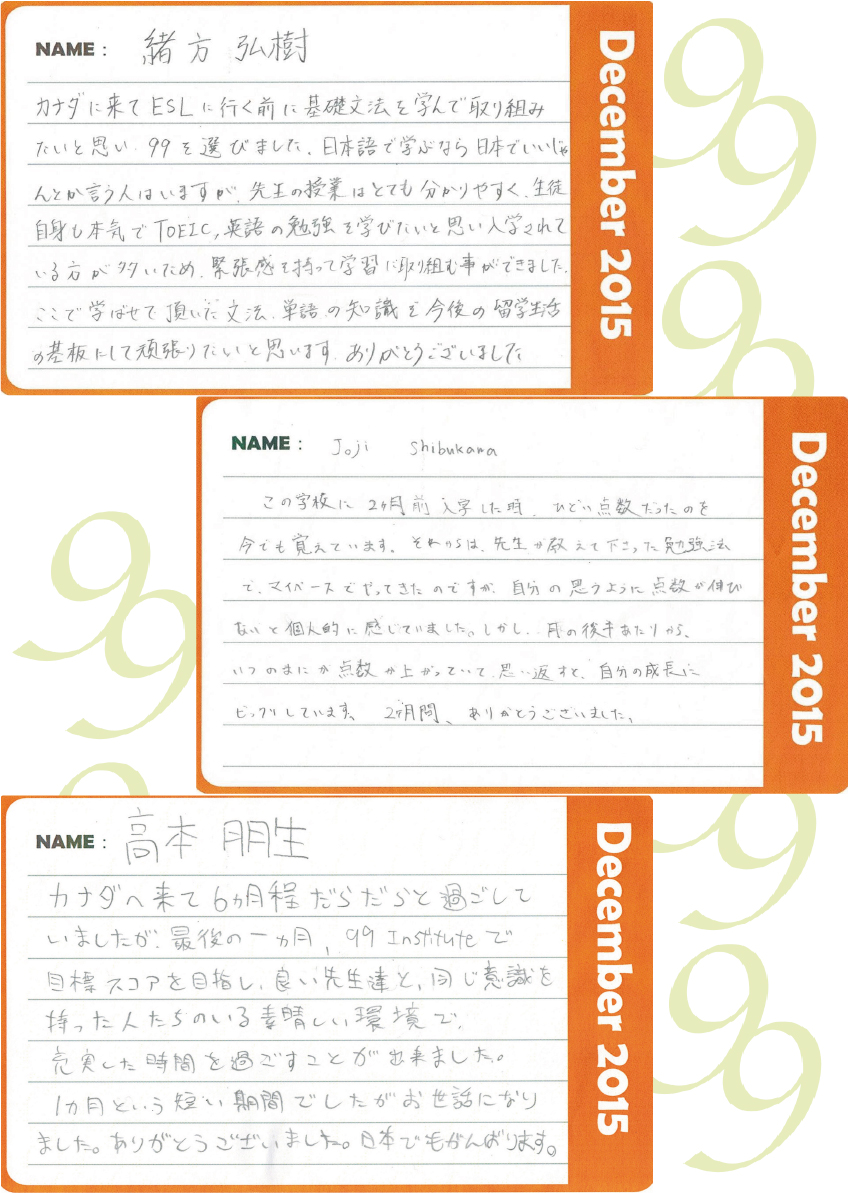 NAME : 緒方 弘樹
カナダに来て ESL に行く前に 基礎文法を学んで取り組み
たいと思い 99 を選びました。日本語で学ぶなら日本でいいじゃ
んとか言う人はいますが、先生の授業はとても分かりやすく、生徒
自身も本気で TOEIC, 英語の勉強を学びたいと思い入学されて
いる方が多いため、緊張感を持って学習に取り組む事ができました。
ここで学ばせて頂いた文法、単語の知識を今後の留学生活
の基板にして頑張りたいと思います。ありがとうございました
December 2015
NAME : Joji Shibukawa
この学校に 2ヶ月前入学した時、ひどい点数だったのを
今でも覚えています。それからは、先生が教えて下さった勉強法
で、マイペースでやってきたのですが、自分の思うように点数が伸び
ないと個人的に感じていました。しかし、月の後半あたりから、
いつのまにか点数が上がっていて、思い返すと、自分の成長に
ビックリしています。2ヶ月間、ありがとうございました。
December 2015
NAME : 高本 朋生
カナダへ来て 6ヵ月程 だらだらと過ごして
いましたが、最後の一ヵ月, 99 Institute で
目標スコアを目指し、良い先生達と、同じ意識を
持った人たちのいる素晴しい環境で、
充実した時間を過ごすことが出来ました。
1ヵ月という短い期間でしたがお世話になり
ました。ありがとうございました。日本でもがんばります。
December 2015
99
99
99
99
99